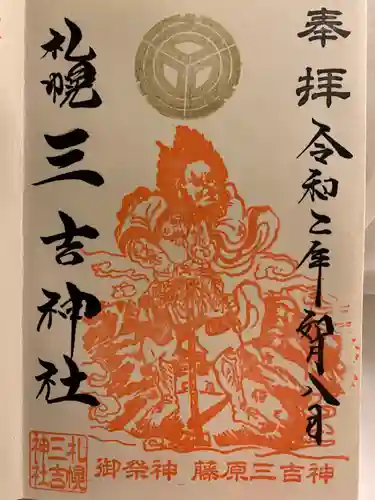 奉拝
令和二年卯月八日
札幌三吉神社
札幌
三吉
神社
御祭神 藤原三吉神